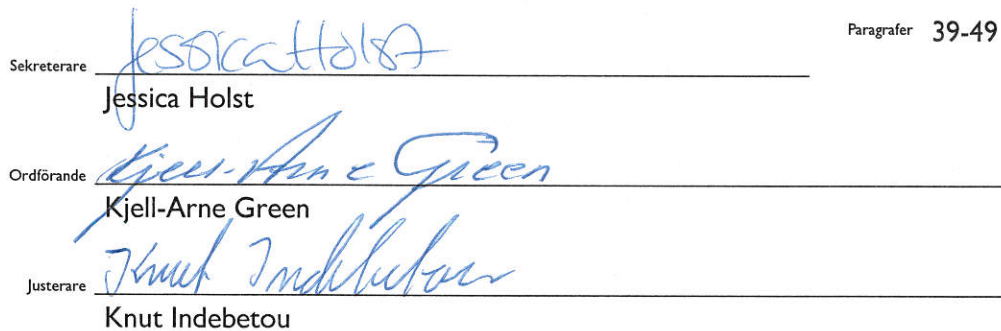 Paragrafer 39-49
Sekreterare Jessica Holst
Jessica Holst
Ordförande Kjell-Arne Green
Kjell-Arne Green
Justerare Knut Indebetou
Knut Indebetou